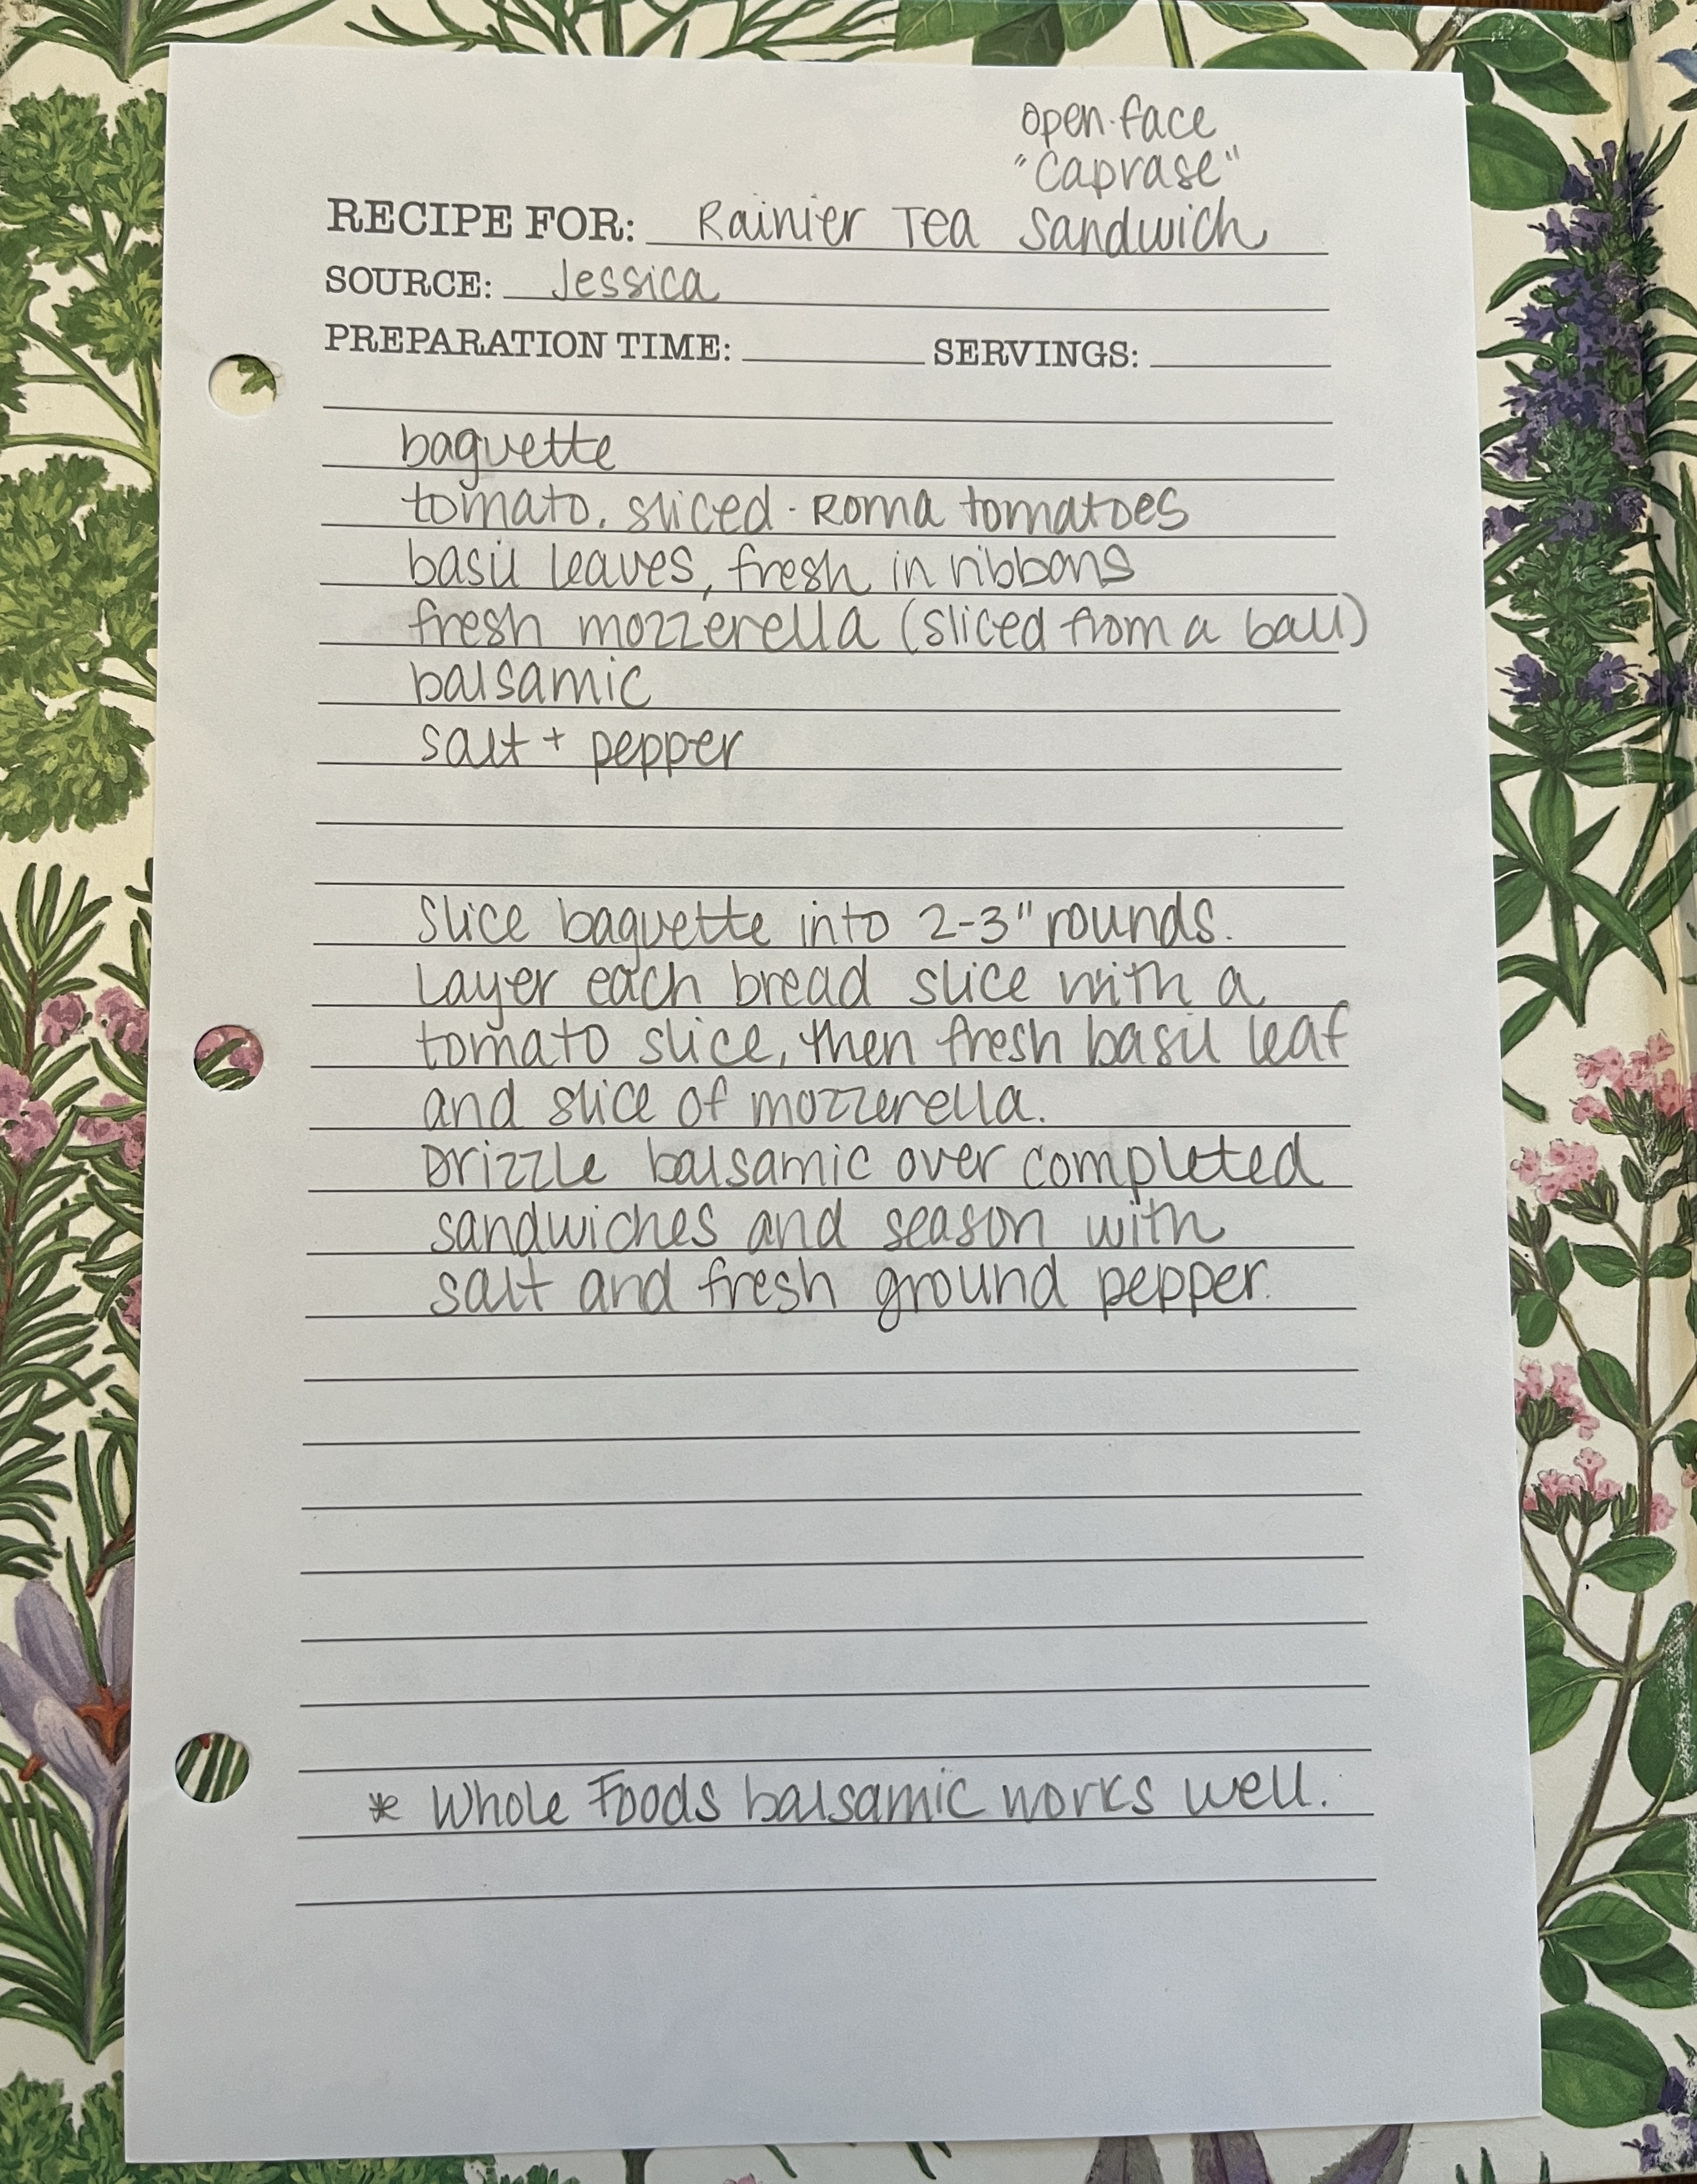 open-face
"Caprase"
RECIPE FOR: Rainier Tea Sandwich
SOURCE: Jessica
PREPARATION TIME: SERVINGS:
baguette
tomato, sliced - Roma tomatoes
basil leaves, fresh in ribbons
fresh mozzerella (sliced from a ball)
balsamic
salt + pepper
Slice baguette into 2-3" rounds.
Layer each bread slice with a
tomato slice, then fresh basil leaf
and slice of mozzerella.
Drizzle balsamic over completed
sandwiches and season with
salt and fresh ground pepper.
* Whole Foods balsamic works well.